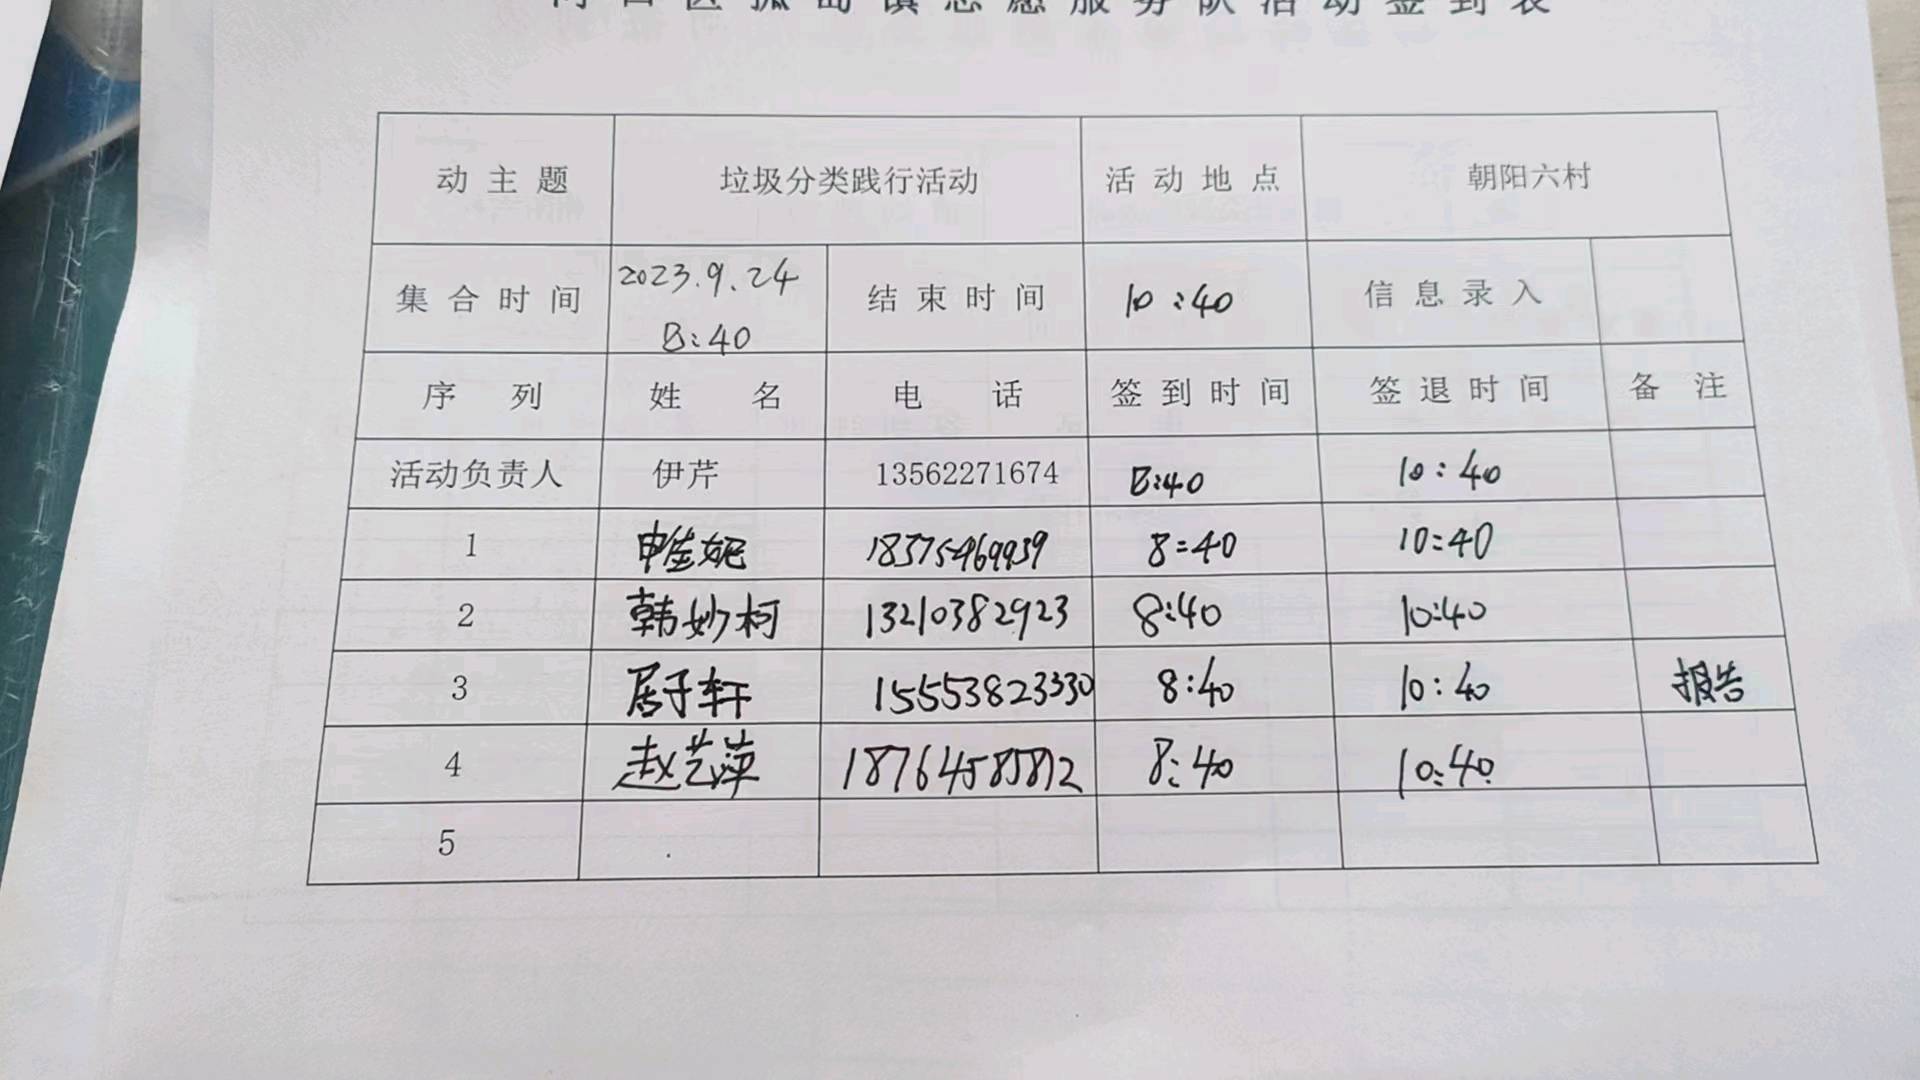 河口区孤岛镇志愿服务队活动签到表
动主题 垃圾分类践行活动 活动地点 朝阳六村
集合时间 2023.9.24 8:40 结束时间 10:40 信息录入
序列 姓名 电话 签到时间 签退时间 备注
活动负责人 伊芹 13562271674 8:40 10:40
1 8:40 10:40
2 韩妙柯 13210382923 8:40 10:40
3 居子轩 15553823330 8:40 10:40 报告
4 赵艺萍 18764585812 8:40 10:40
5